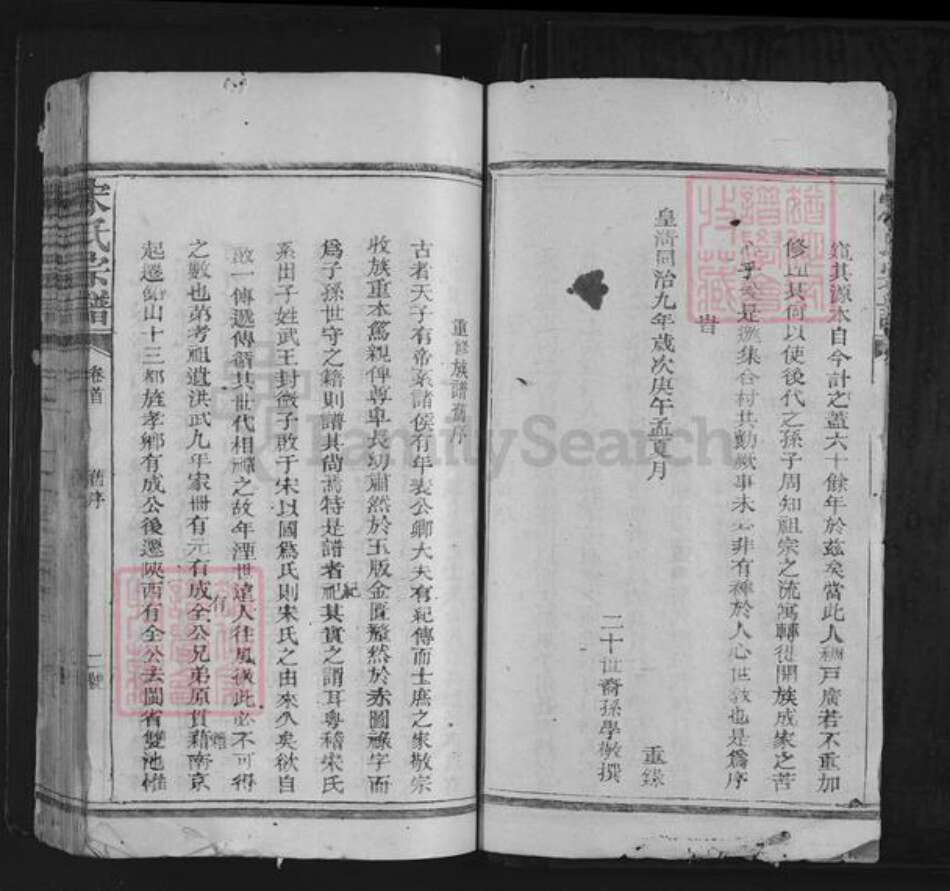 窺其源本自今計之蓋六十餘年於茲矣當此人稠戶廣若不重加
修其何以使後代之孫子周知祖宗之流寓轉徙開族成家之苦
乎是邀集合村共勷厥事未必非有裨於人心世敎也是爲序
旹
皇淸同治九年歲次庚午孟夏月
重錄
二十世裔孫學敬撰
重修族譜舊序
古者天子有帝系諸侯有年表公卿大夫有紀傳而士庶之家敬宗
收族重本篤親俾尊卑長幼肅然於玉版金匱釐然於赤圖綠字而
爲子孫世守之籍則譜其尚焉特是譜者祀其實之謂耳粵稽宋氏
紀
系出子姓武王封微子啟于宋以國爲氏則宋氏之由來久矣欲自
啟一傳遞傳循其世代相禪之故年湮世遠人往風微此必不可得
之數也第考祖遺洪武九年家冊有元有成全公兄弟原貫藉南京
有
起遷衡山十三都旌孝鄉有成公後遷陝西有全公去閩省雙池惟
宋氏宗譜
卷首
舊序
FamilySearch